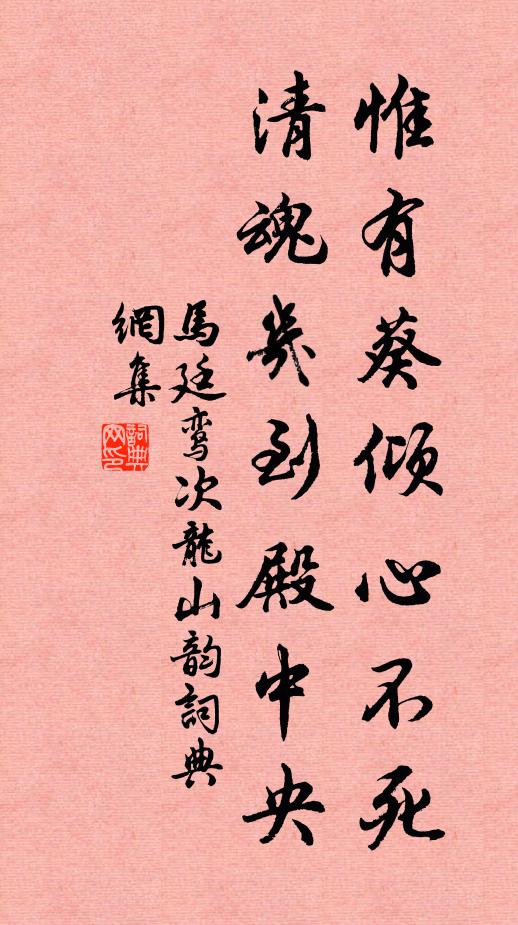 惟有葵倾心不死
清魂几到殿中央
馬廷鸞次龍山韵詞典
網集
詞典
网印